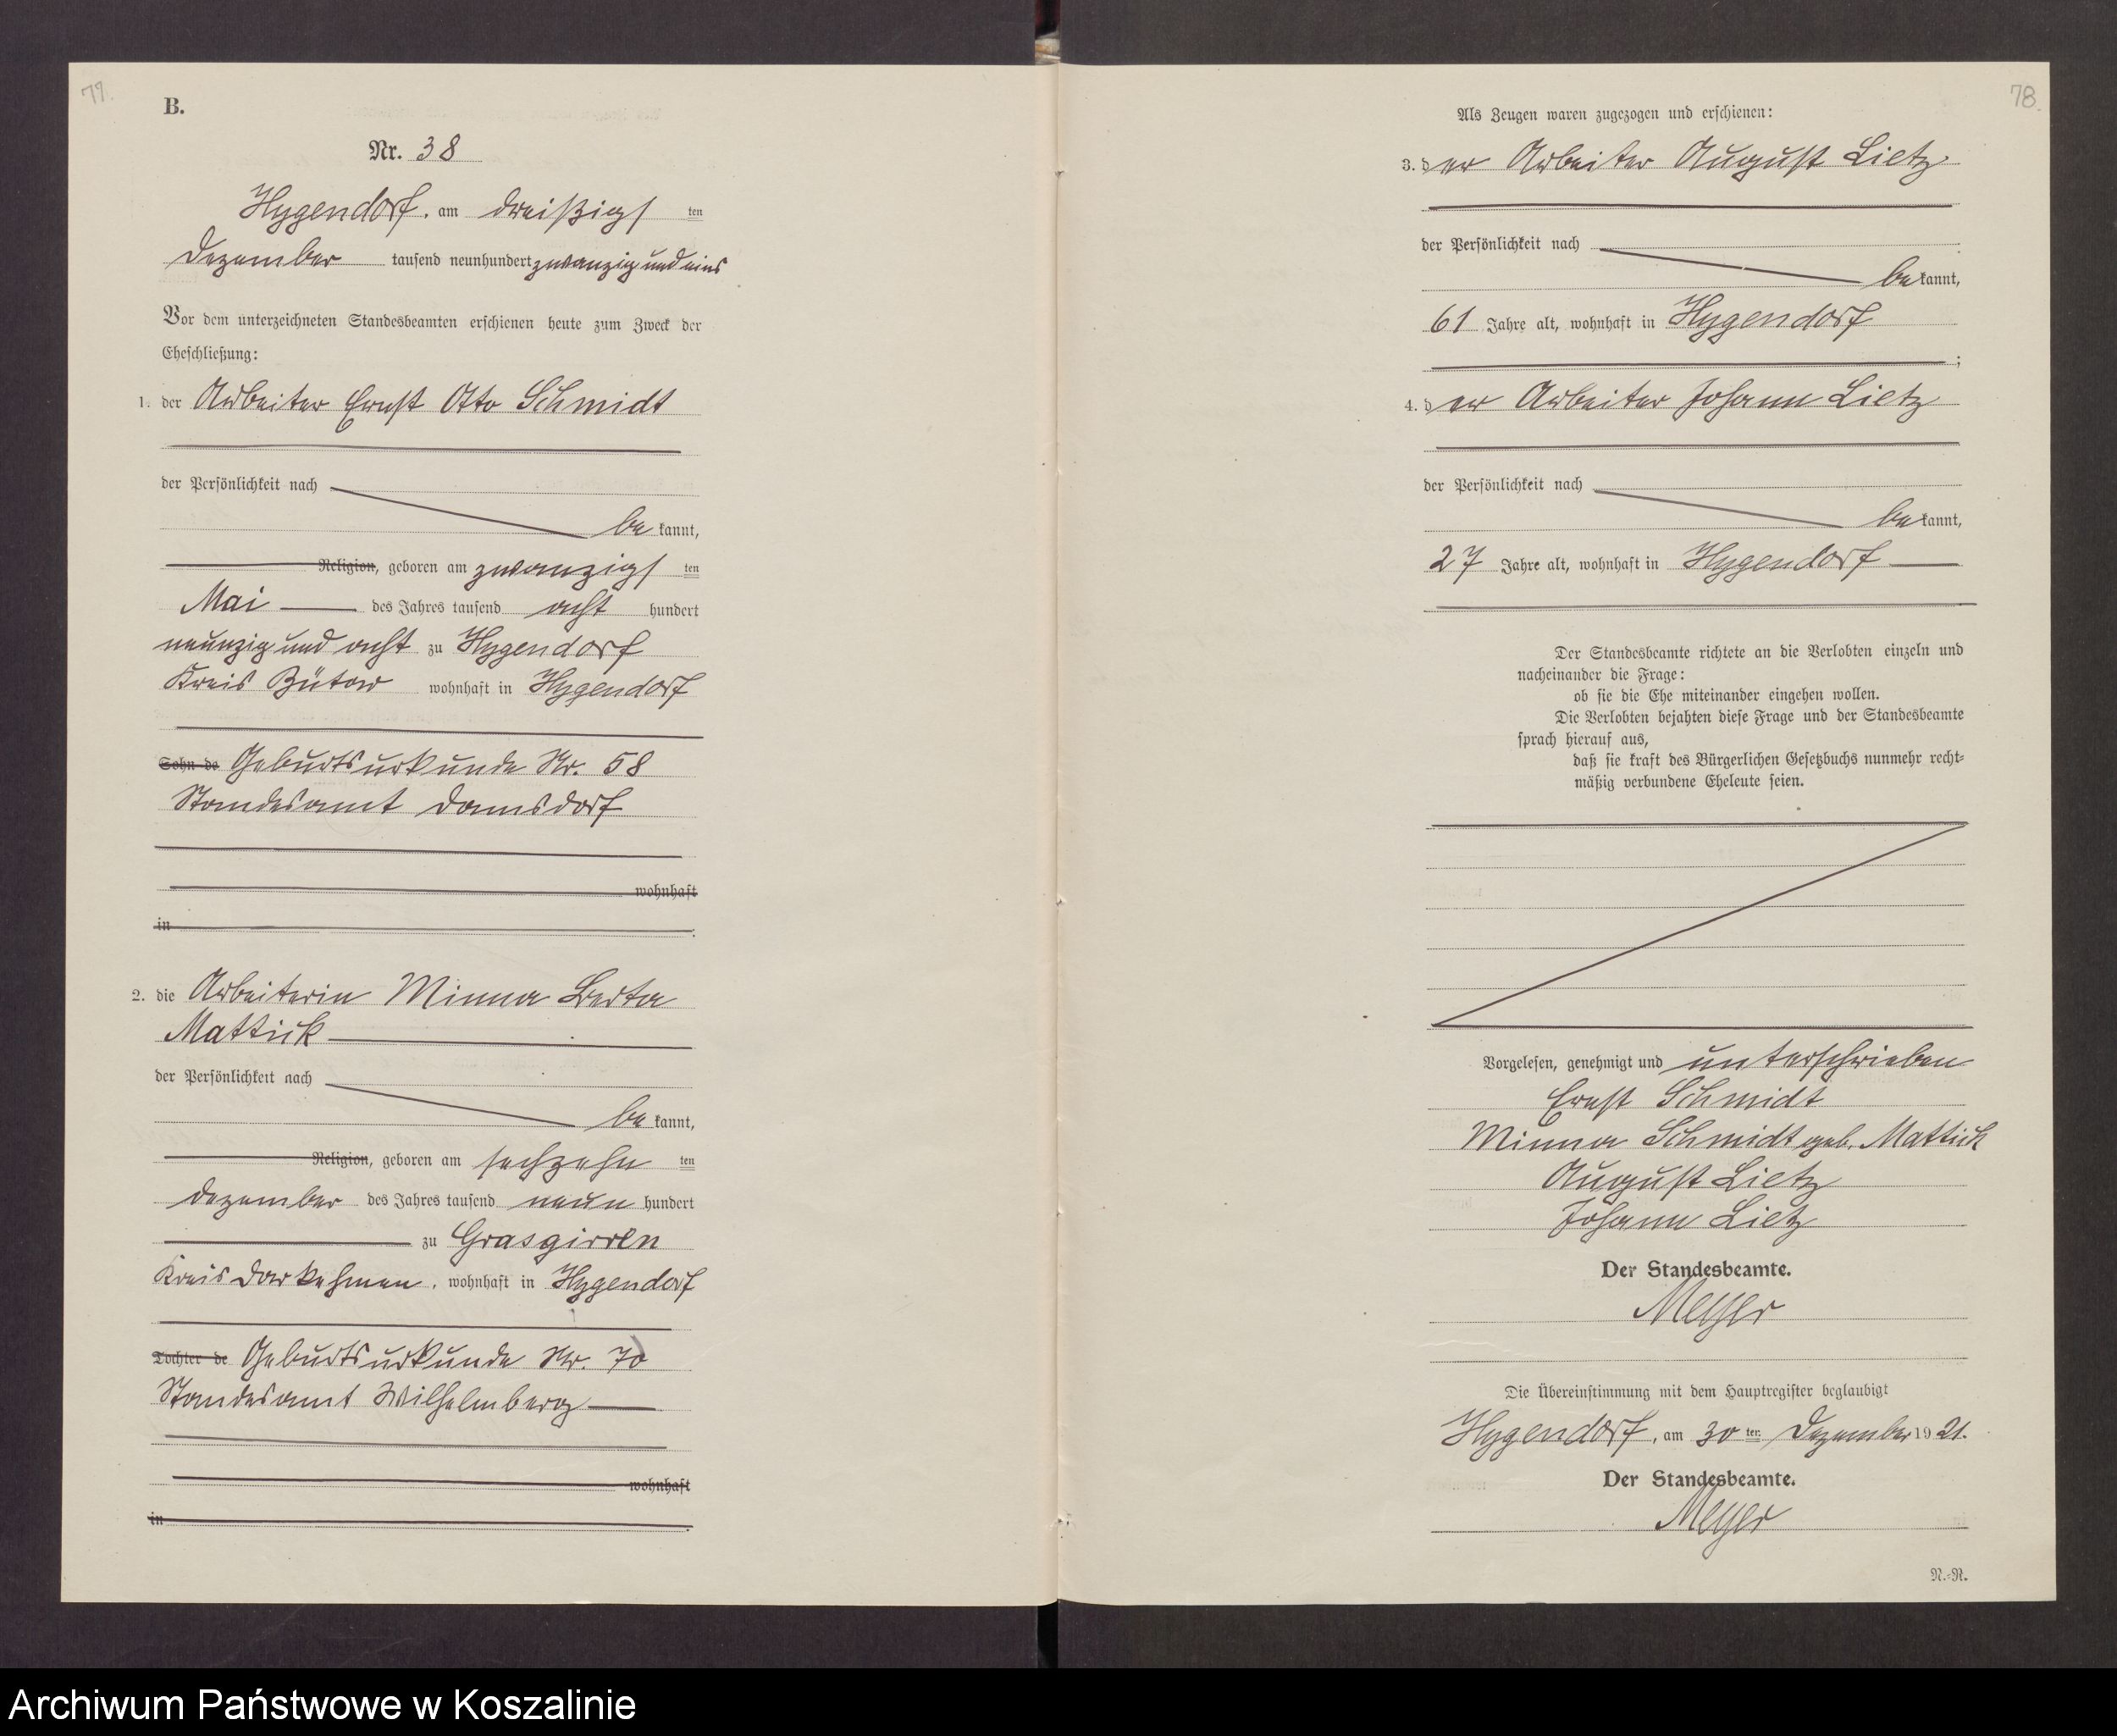 79.
B.
Nr. 38
Hygendorf, am dreißigsten
Dezember tausend neunhundert zwanzig und eins
Vor dem unterzeichneten Standesbeamten erschienen heute zum Zweck der
Eheschließung:
1. der Arbeiter Ernst Otto Schmidt
der Persönlichkeit nach
be kannt,
Religion, geboren am zwanzigsten
Mai des Jahres tausend acht hundert
neunzig und acht zu Hygendorf
Kreis Bütow wohnhaft in Hygendorf
Sohn de Geburtsurkunde Nr. 58
Standesamt Damsdorf
wohnhaft
in
2. die Arbeiterin Minna Berta
Mattick
der Persönlichkeit nach
be kannt,
Religion, geboren am sechzehn ten
Dezember des Jahres tausend neun hundert
zu Grasgirren
Kreis Darkehmen, wohnhaft in Hygendorf
Tochter de Geburtsurkunde Nr. 70
Standesamt Wilhelmberg
wohnhaft
in
78.
Als Zeugen waren zugezogen und erschienen:
3. der Arbeiter August Lietz
der Persönlichkeit nach
be kannt,
61 Jahre alt, wohnhaft in Hygendorf
;
4. der Arbeiter Johann Lietz
der Persönlichkeit nach
be kannt,
27 Jahre alt, wohnhaft in Hygendorf
Der Standesbeamte richtete an die Verlobten einzeln und
nacheinander die Frage:
ob sie die Ehe miteinander eingehen wollen.
Die Verlobten bejahten diese Frage und der Standesbeamte
sprach hierauf aus,
daß sie kraft des Bürgerlichen Gesetzbuchs nunmehr recht-
mäßig verbundene Eheleute seien.
Vorgelesen, genehmigt und unterschrieben
Ernst Schmidt
Minna Schmidt geb. Mattick
August Lietz
Johann Lietz
Der Standesbeamte.
Meyer
Die Übereinstimmung mit dem Hauptregister beglaubigt
Hygendorf, am 30 ten Dezember 1921.
Der Standesbeamte.
Meyer
N.-R.
Archiwum Państwowe w Koszalinie